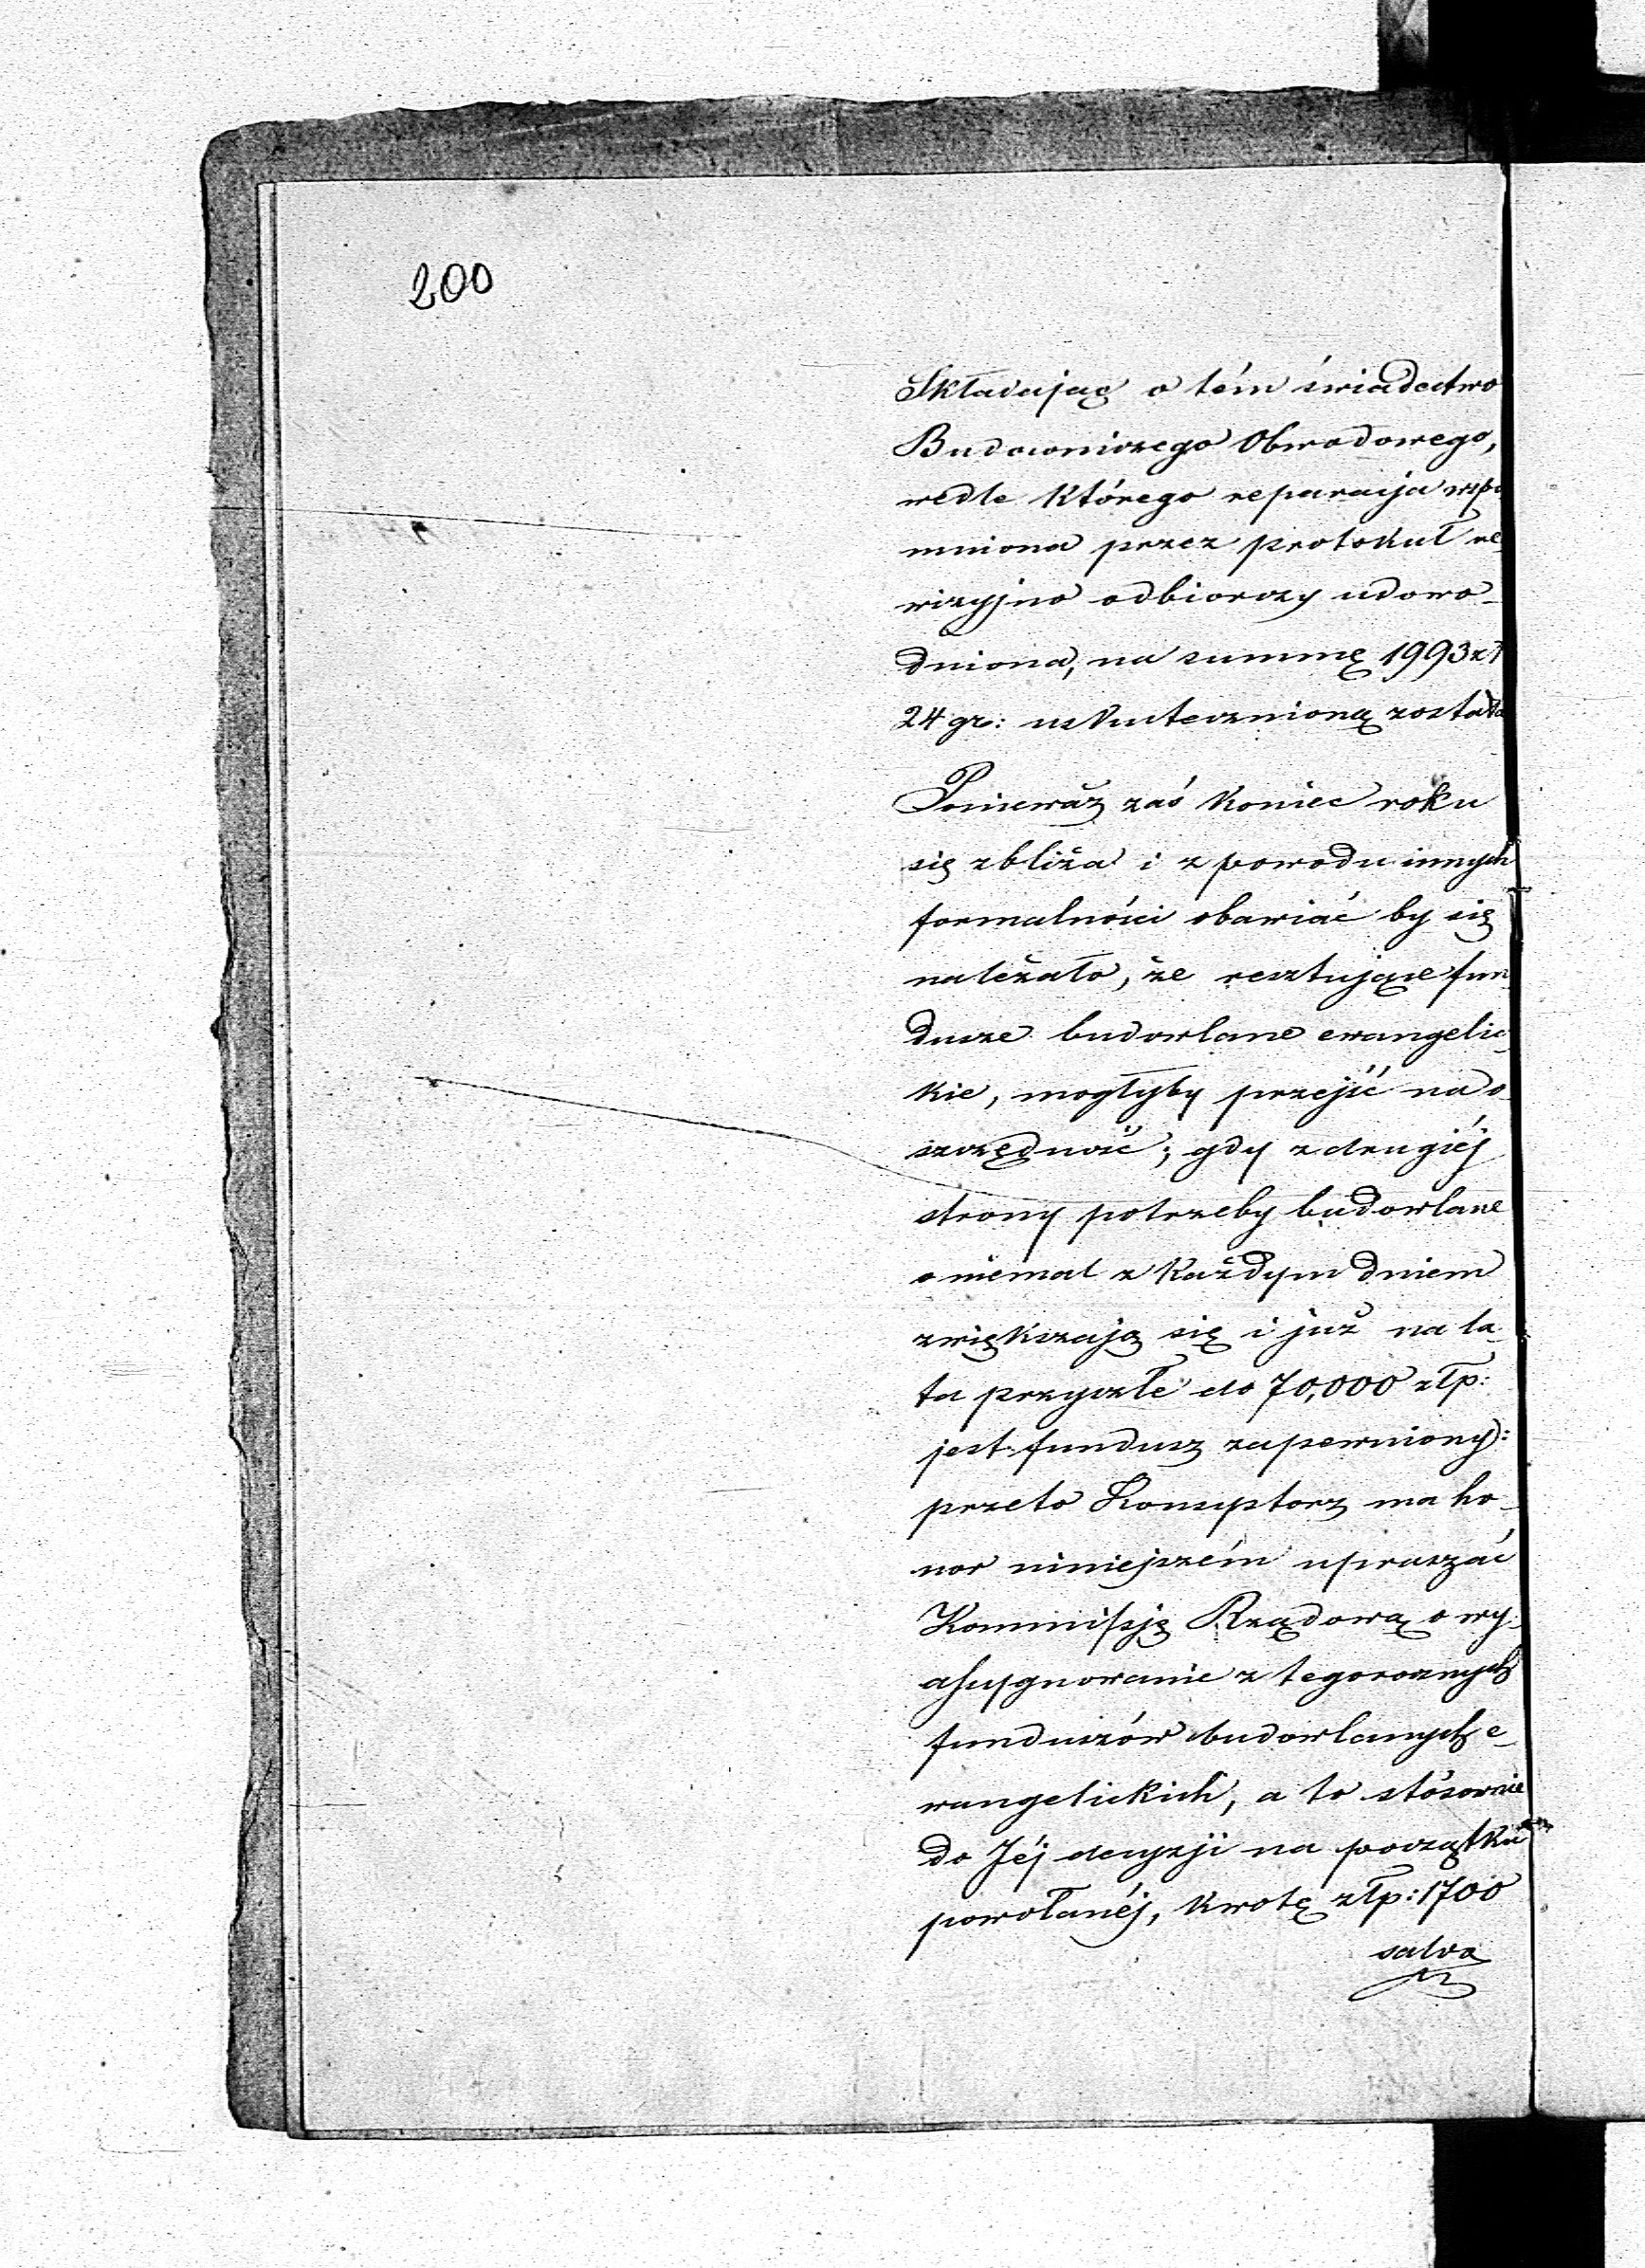 200
Składając o tém świadectwo
Budowniczego Obwodowego,
wedle którego reparacja wspo
mniona przez protokuł re-
wizyjno odbiorczy udowo-
dniona, na summę 1993 zł
24 gr: uskutecznioną została
Ponieważ zaś koniec roku
się zbliża i z powodu innych
formalności obawiać by się
należało, że resztujące fun
dusze budowlane ewangelic-
kie, mogłyby przejść na o
szczędność; gdy z drugiéj
strony potrzeby budowlane
o niemal z każdym dniem
zwiększają się i już na la-
ta przyszłe do 70,000 złp:
jest fundusz zapewniony:
przeto Konsystorz ma ho-
nor niniejszém upraszać
Kommissję Rządową o wy-
assygnowanie z tegorocznych
funduszów budowlanych e-
wangelickich, a to stósownie
do Jéj decyzji na początku
powołanéj, kwotę złp: 1700
salva